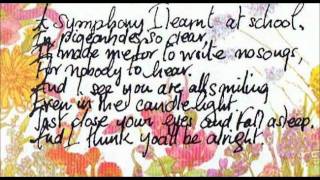 A Symphony I learnt at school,
so clear,
It made me for to write no songs,
For nobody to hear.
And I see you are all smiling
Even in the candle-light.
Just close your eyes and fall asleep.
And I think you'll be alright.